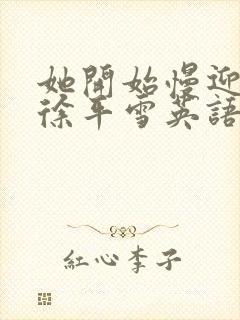 她開始慢迎
徐平雪英語
紅心李子